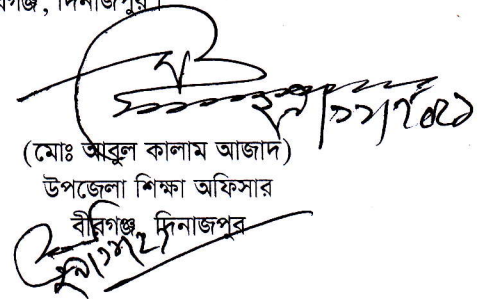 রগঞ্জ, দিনাজপুর।
২৯/১১/২০২১
(মোঃ আবুল কালাম আজাদ)
উপজেলা শিক্ষা অফিসার
বীরগঞ্জ, দিনাজপুর